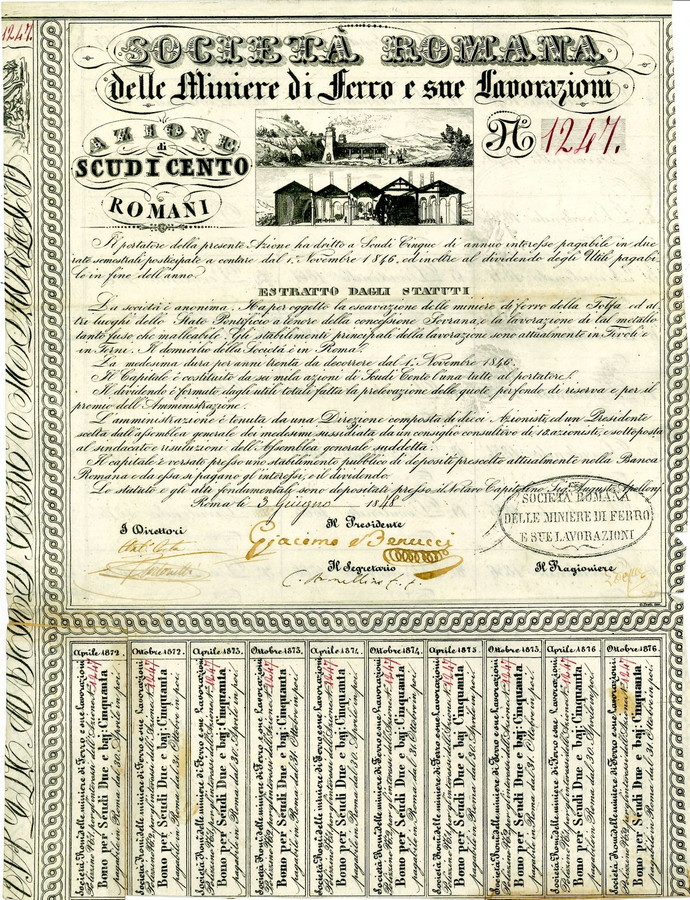 1247.
SOCIETÀ ROMANA
delle Miniere di Ferro e sue Lavorazioni
AZIONE
di
SCUDI CENTO
ROMANI
N 1247.
Il portatore della presente Azione ha dritto a Scudi Cinque di annuo interesse pagabile in due
rate semestrali posticipate a contare dal 1.º Novembre 1846, ed inoltre al dividendo degli Utili pagabi
le in fine dell'anno.
ESTRATTO DAGLI STATUTI
La società è anonima. Ha per oggetto la escavazione delle miniere di ferro della Tolfa ed al
tri luoghi dello Stato Pontificio a tenore della concessione Sovrana, e la lavorazione di tal metallo
tanto fuso che malleabile. Gli stabilimenti principali della lavorazione sono attualmente in Tivoli e
in Terni. Il domicilio della Società è in Roma.
La medesima dura per anni trenta da decorrere dal 1.º Novembre 1846.
Il Capitale è costituito da sei mila azioni di Scudi Cento l'una tutte al portatore.
Il dividendo è formato dagli utili totali fatta la prelevazione delle quote per fondo di riserva e per il
premio dell'Amministrazione.
L'amministrazione è tenuta da una Direzione composta di dieci Azionisti, ed un Presidente
scelta dall'assemblea generale dei medesimi sussidiata da un consiglio consultivo di 12 azionisti, e sottoposta
al sindacato e risoluzioni dell'Assemblea generale suddetta.
Il capitale è versato presso uno stabilimento pubblico di depositi prescelto attualmente nella Banca
Romana e da essa si pagano gl'interessi, e il dividendo.
Lo statuto e gli atti fondamentali sono depositati presso il Notaro Capitolino Sig. Augusto Apolloni.
Roma li 3 Giugno 1848
SOCIETÀ ROMANA
DELLE MINIERE DI FERRO
E SUE LAVORAZIONI
I Direttori
Il Presidente
Giacomo Benucci
Il Segretario
Il Ragioniere
Aprile 1872. Ottobre 1872. Aprile 1873. Ottobre 1873. Aprile 1874. Ottobre 1874. Aprile 1875. Ottobre 1875. Aprile 1876. Ottobre 1876.
Società Rom. delle miniere di Ferro e sue Lavorazioni
dell'Azione N. 1247
Bono per Scudi Due e baj: Cinquanta
pagabile in Roma dal 30. Aprile in poi
Società Rom. delle miniere di Ferro e sue Lavorazioni
dell'Azione N. 1247
Bono per Scudi Due e baj: Cinquanta
pagabile in Roma dal 31 Ottobre in poi
Società Rom. delle miniere di Ferro e sue Lavorazioni
dell'Azione N. 1247
Bono per Scudi Due e baj: Cinquanta
pagabile in Roma dal 30. Aprile in poi
Società Rom. delle miniere di Ferro e sue Lavorazioni
dell'Azione N. 1247
Bono per Scudi Due e baj: Cinquanta
pagabile in Roma dal 31 Ottobre in poi
Società Rom. delle miniere di Ferro e sue Lavorazioni
dell'Azione N. 1247
Bono per Scudi Due e baj: Cinquanta
pagabile in Roma dal 30. Aprile in poi
Società Rom. delle miniere di Ferro e sue Lavorazioni
dell'Azione N. 1247
Bono per Scudi Due e baj: Cinquanta
pagabile in Roma dal 31 Ottobre in poi
Società Rom. delle miniere di Ferro e sue Lavorazioni
dell'Azione N. 1247
Bono per Scudi Due e baj: Cinquanta
pagabile in Roma dal 30. Aprile in poi
Società Rom. delle miniere di Ferro e sue Lavorazioni
dell'Azione N. 1247
Bono per Scudi Due e baj: Cinquanta
pagabile in Roma dal 31 Ottobre in poi
Società Rom. delle miniere di Ferro e sue Lavorazioni
dell'Azione N. 1247
Bono per Scudi Due e baj: Cinquanta
pagabile in Roma dal 30. Aprile in poi
Società Rom. delle miniere di Ferro e sue Lavorazioni
dell'Azione N. 1247
Bono per Scudi Due e baj: Cinquanta
pagabile in Roma dal 31 Ottobre in poi